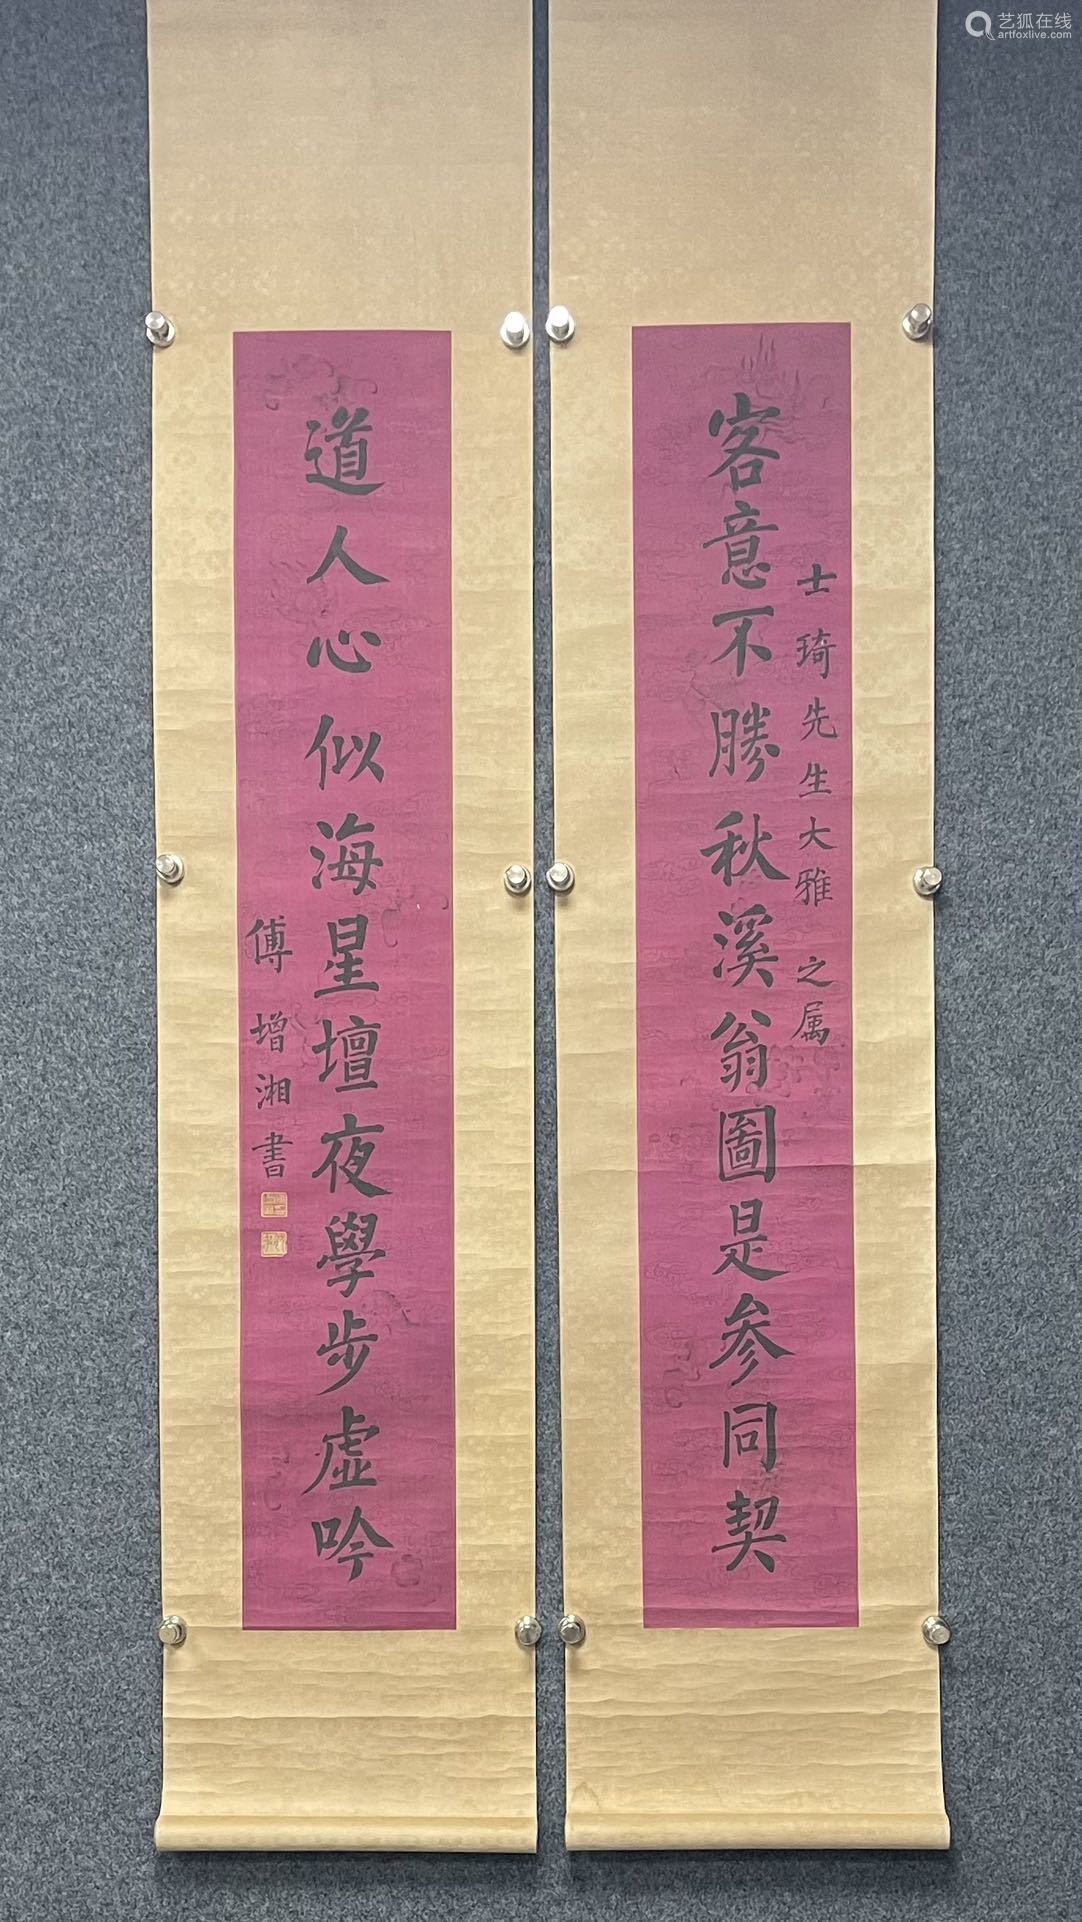 艺狐在线
artfoxlive.com
士琦先生大雅之属
客意不勝秋溪翁圖是参同契
道人心似海星壇夜學步虚吟
傅增湘書